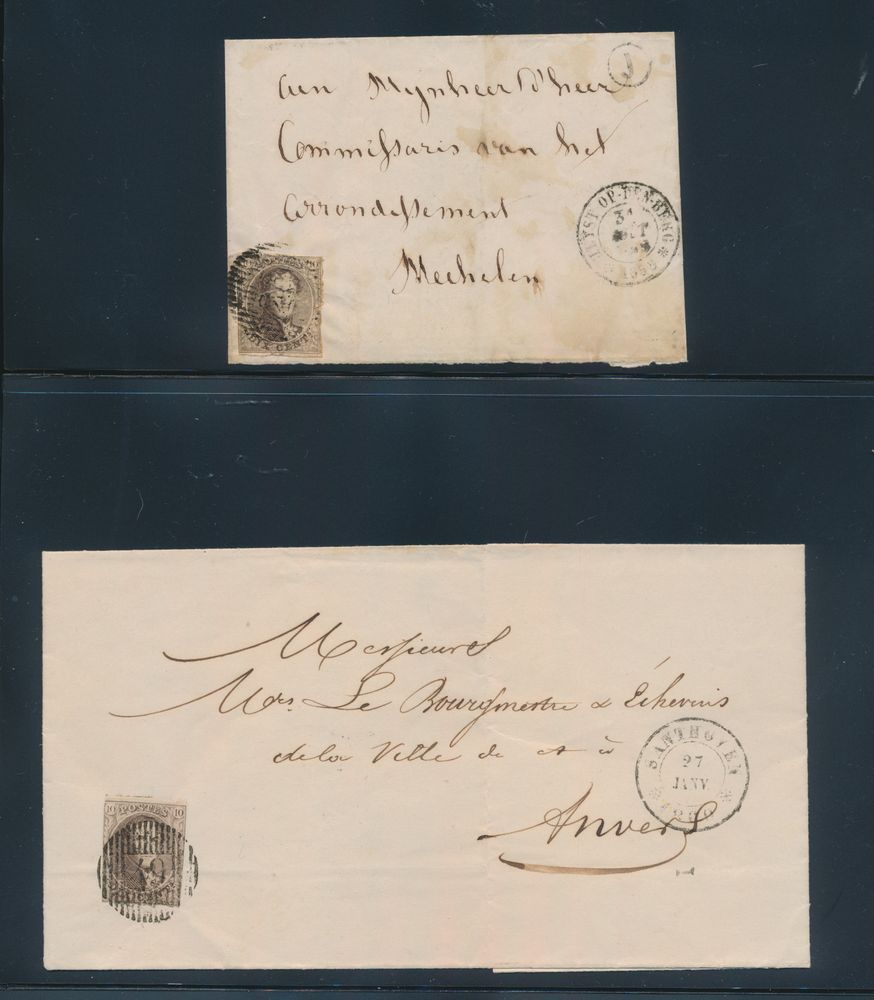 J
Aen Mynheer d'heer
Commissaris van het
Arrondissement
Mechelen
HEYST-OP-DEN-BERG
31
1858
POSTES
10
DIX CENTS
Messieurs
Mrs. Le Bourgmestre & Echevins
de la Ville de et à
Anvers
SANTHOVEN
27
JANV.
10 POSTES 10
1